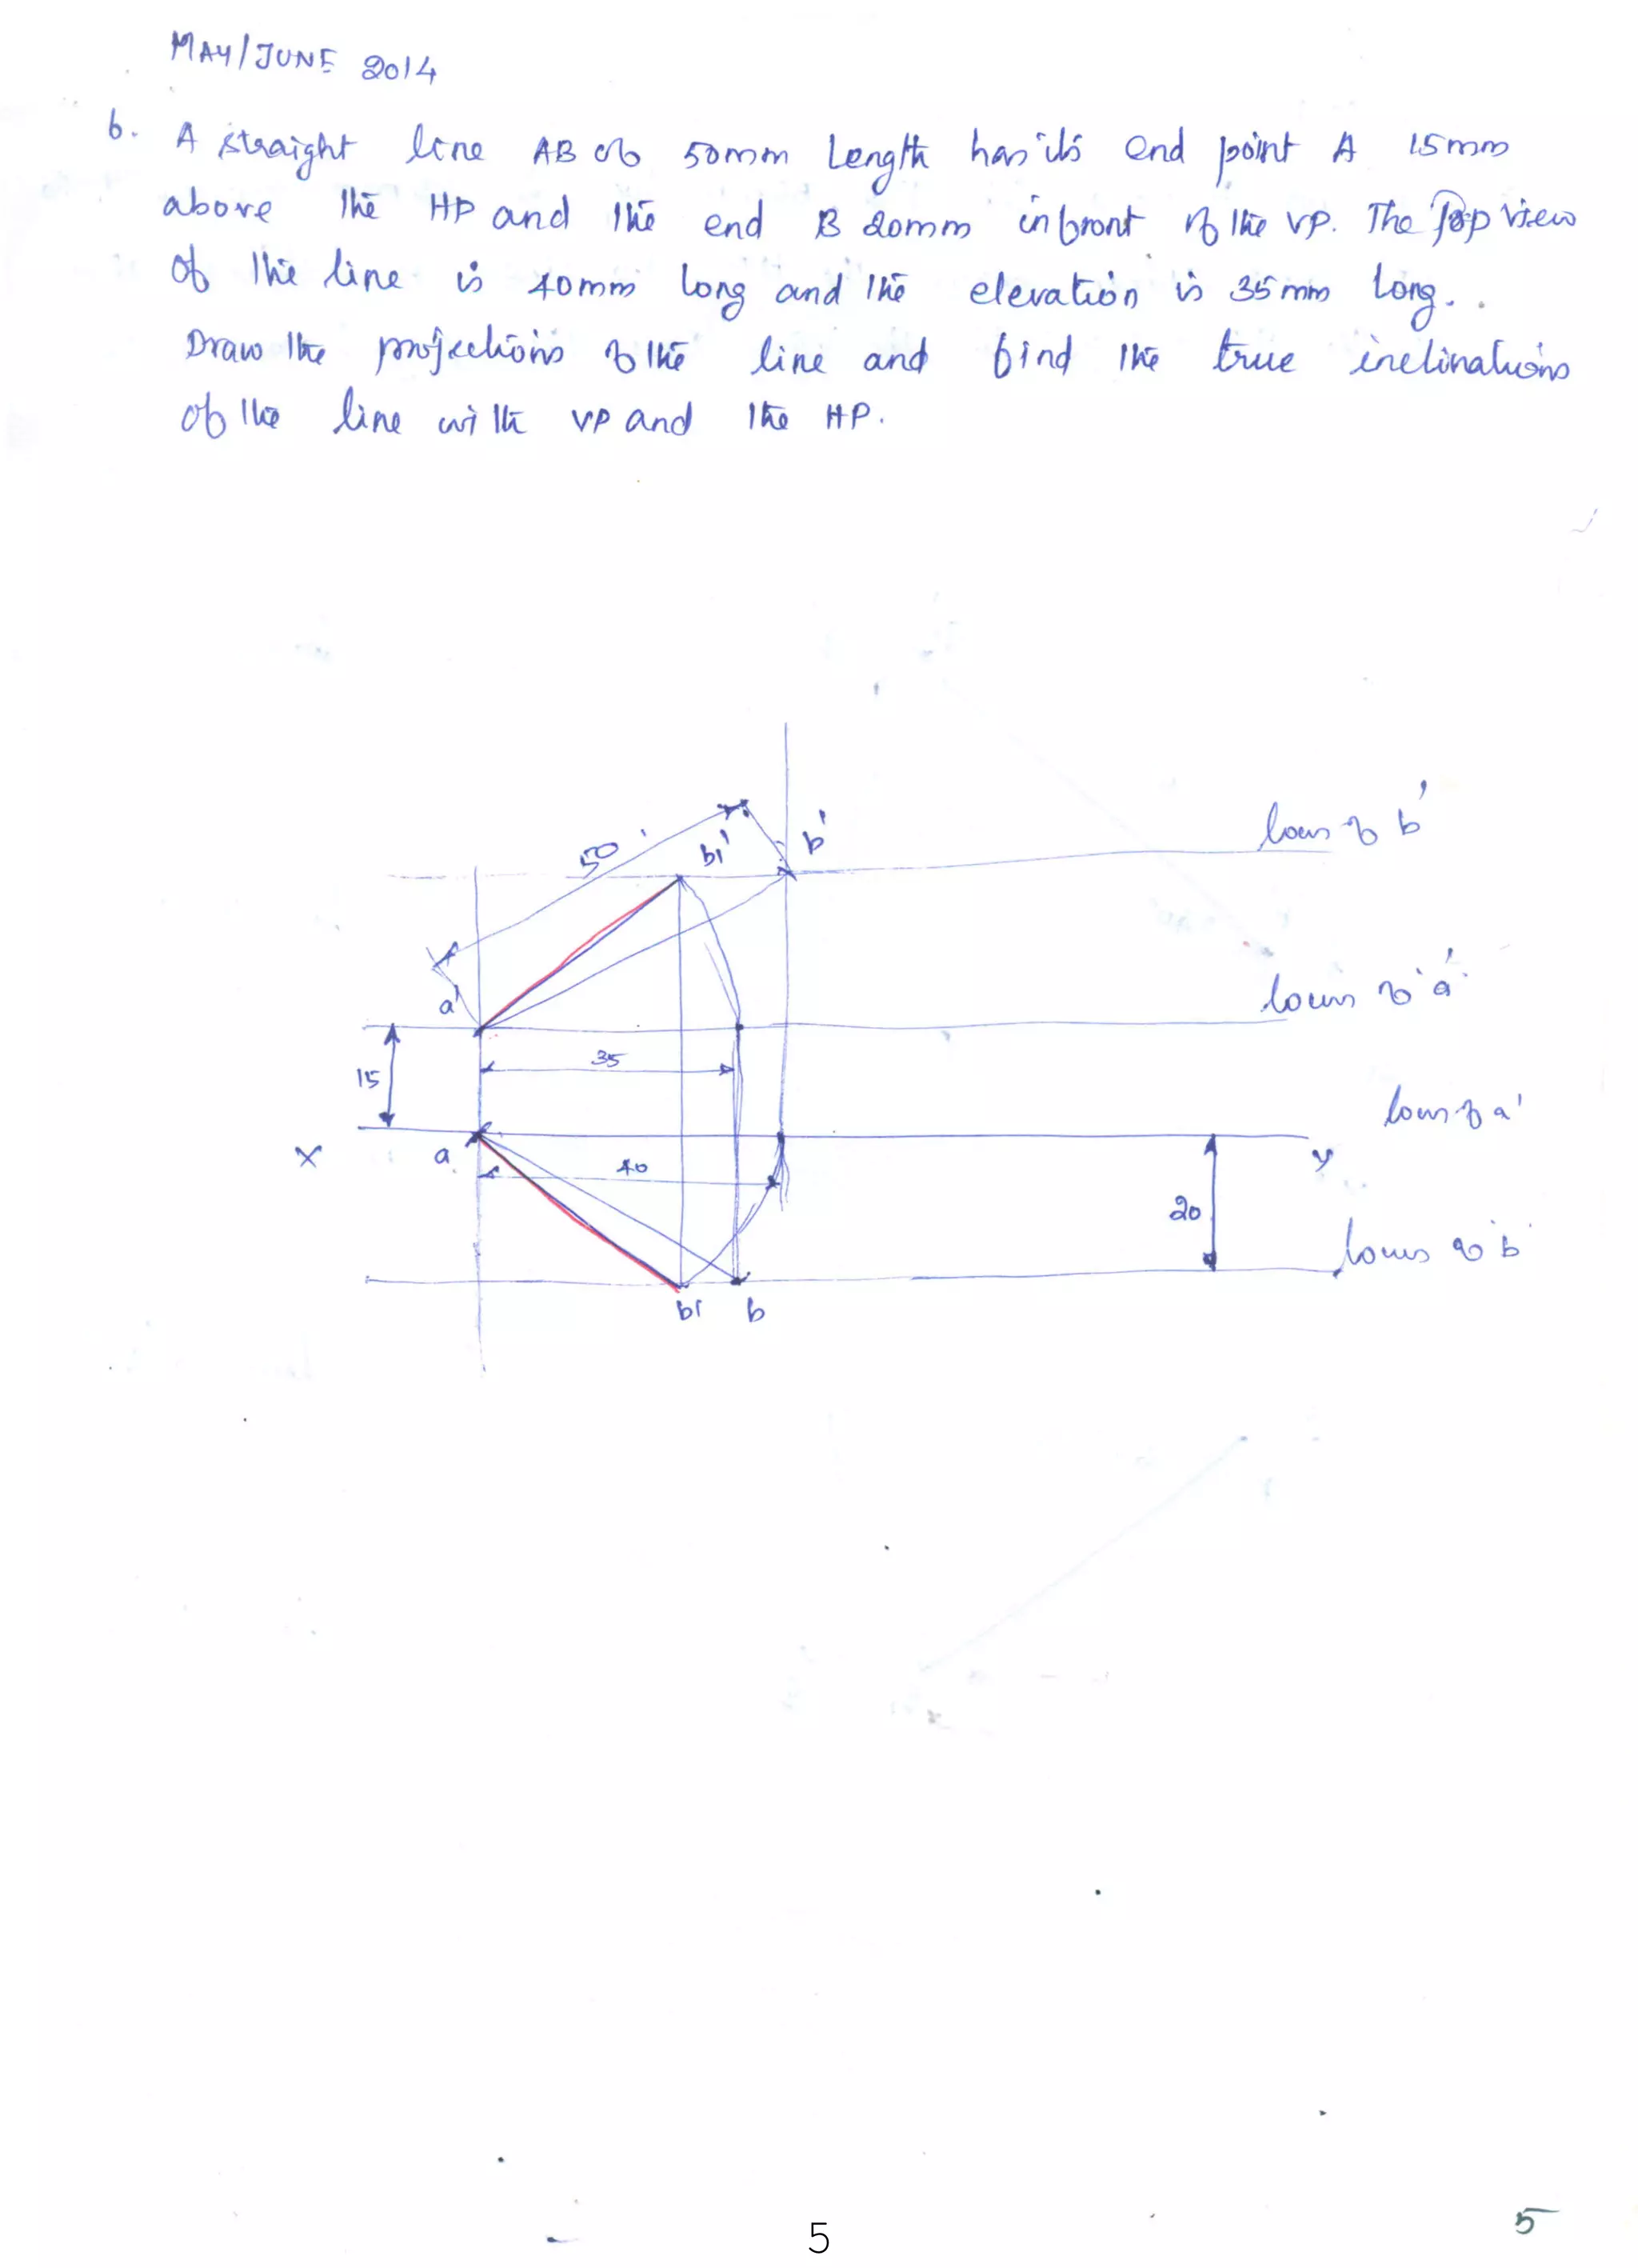 MAY/JUNE 2014
6. A straight line AB of 50mm Length has its end point A 15mm
above the HP and the end B 20mm infront of the VP. The Top View
of the line is 40mm long and the elevation is 35mm long.
Draw the projections of the line and find the true inclinations
of the line with VP and the HP.
locus of b'
50
b1'
b'
a'
locus of a'
35
15
locus of a'
X
a
40
y
20
locus of b
b1
b
5
5